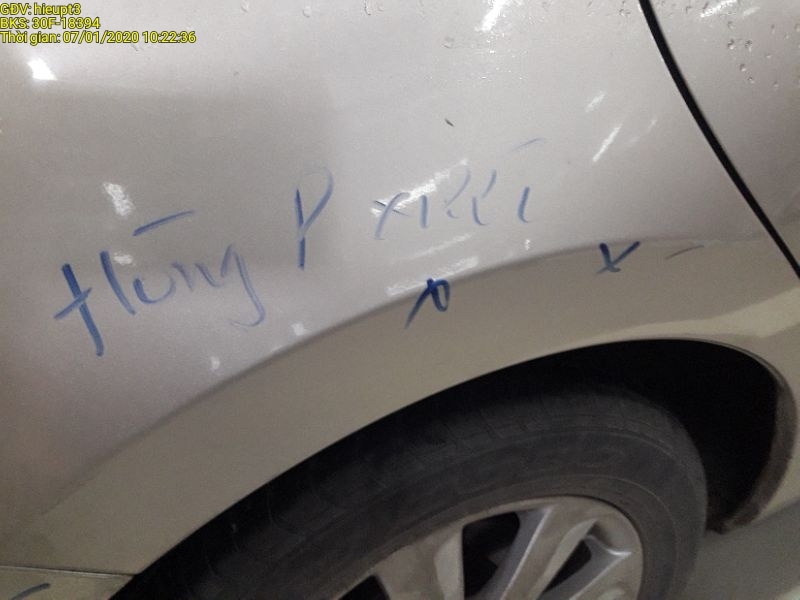 GĐV: hieupt3
BKS: 30F-18394
Thời gian: 07/01/2020 10:22:36
Hùng P